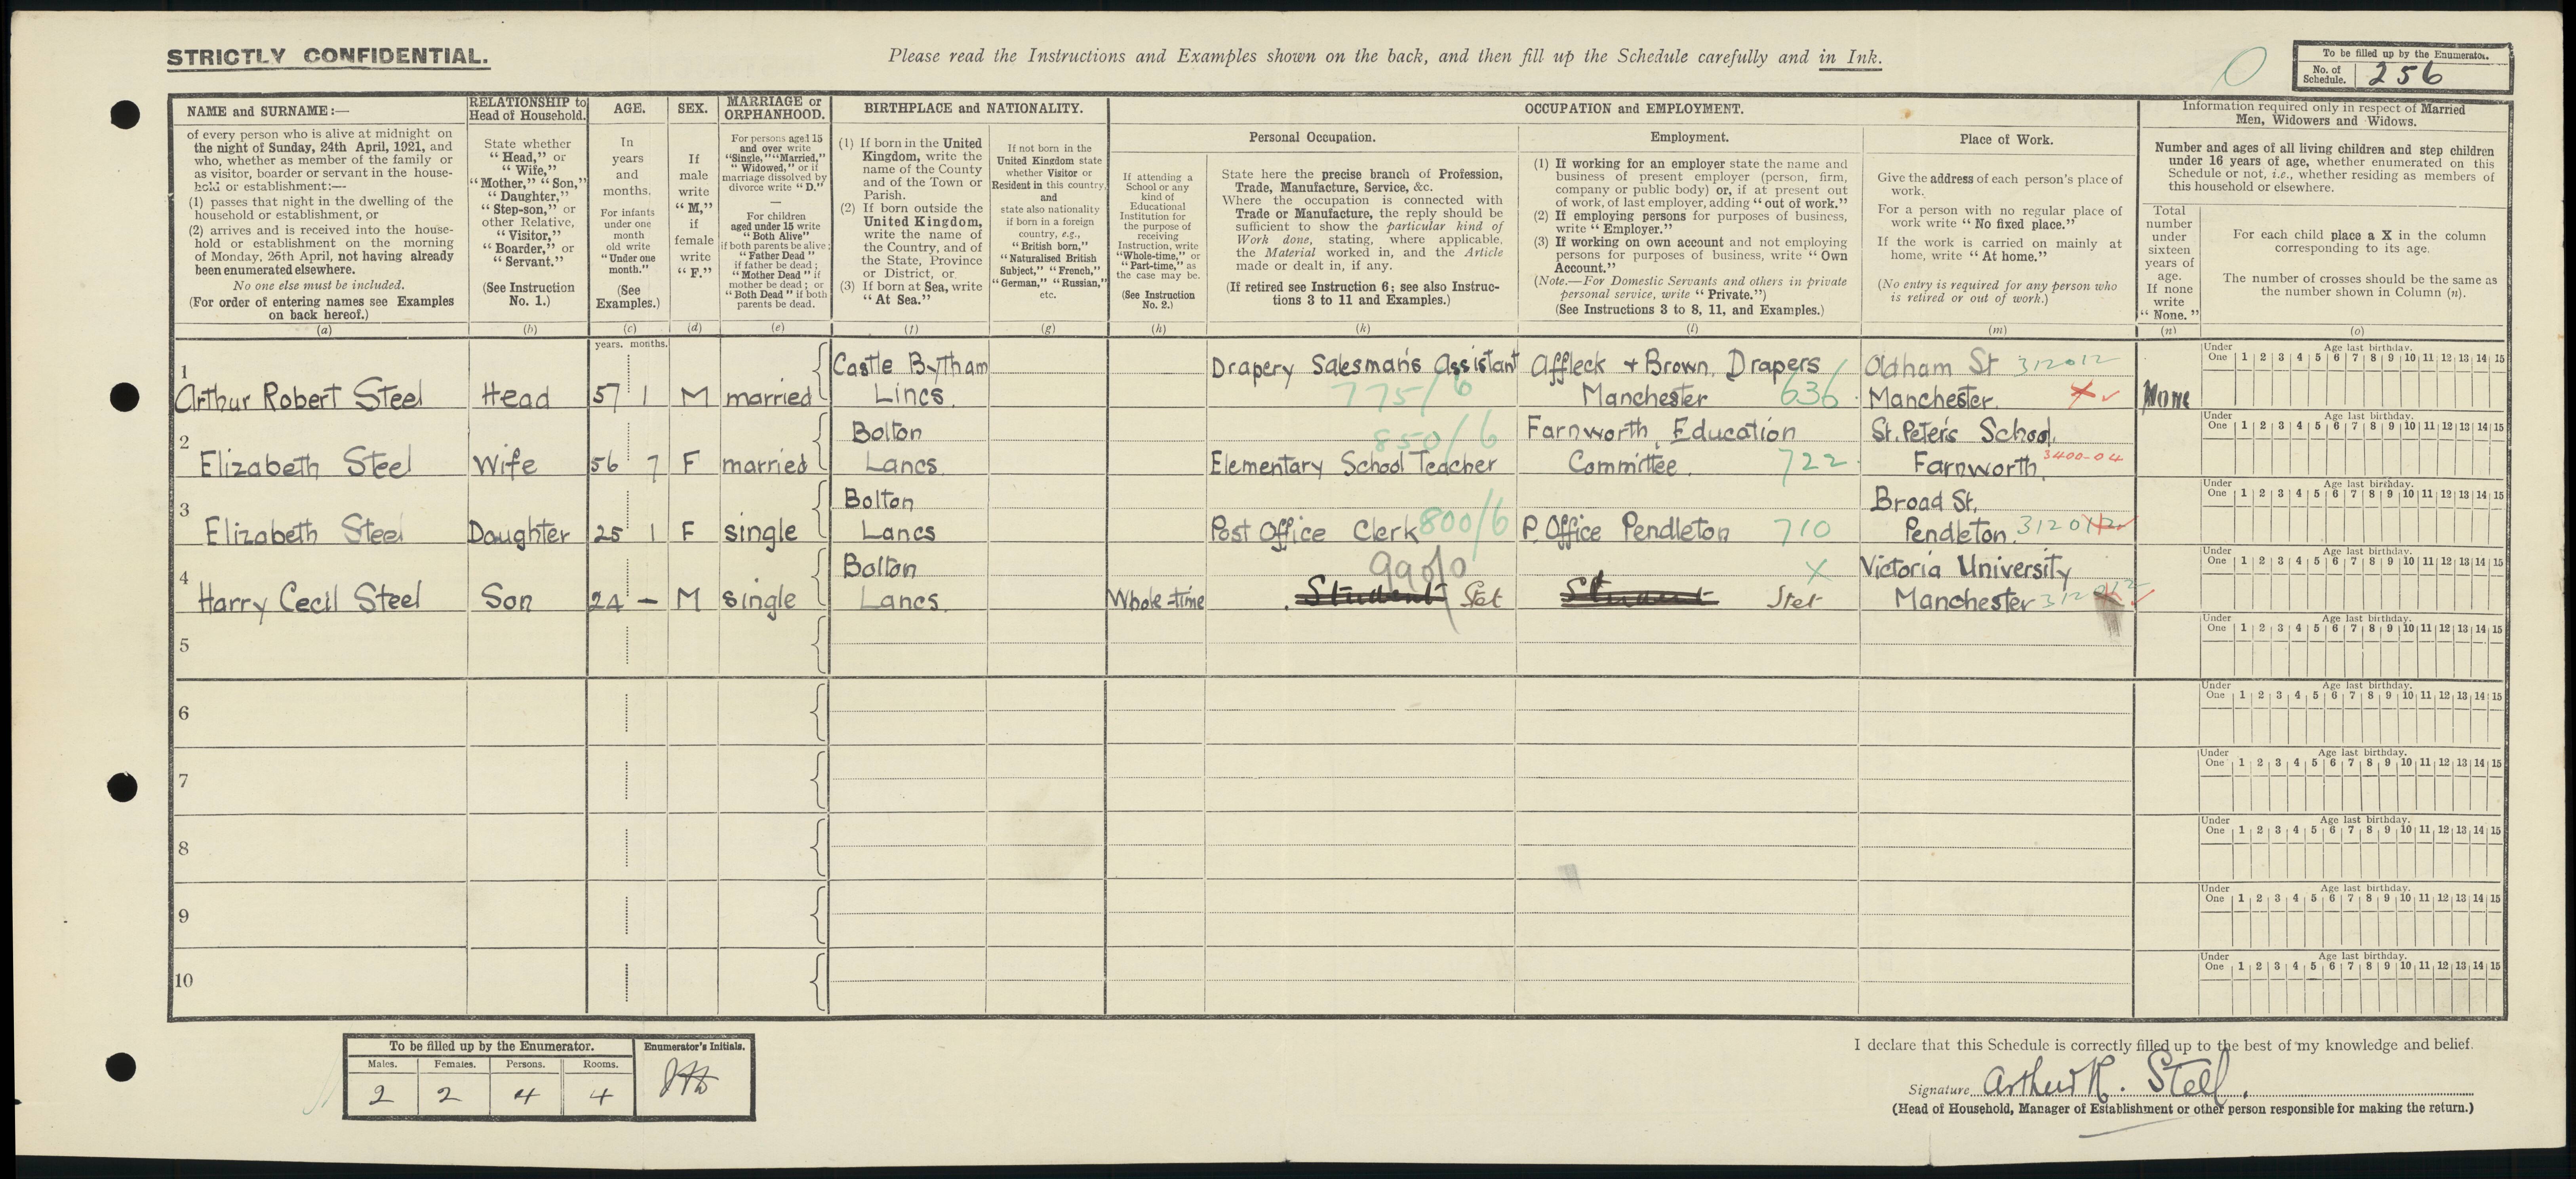 STRICTLY CONFIDENTIAL.
Please read the Instructions and Examples shown on the back, and then fill up the Schedule carefully and in Ink.
To be filled up by the Enumerator.
No. of Schedule. 256
NAME and SURNAME:—
of every person who is alive at midnight on
the night of Sunday, 24th April, 1921, and
who, whether as member of the family or
as visitor, boarder or servant in the house-
hold or establishment:—
(1) passes that night in the dwelling of the
household or establishment, or
(2) arrives and is received into the house-
hold or establishment on the morning
of Monday, 25th April, not having already
been enumerated elsewhere.
No one else must be included.
(For order of entering names see Examples
on back hereof.)
(a)
RELATIONSHIP to
Head of Household.
State whether
“Head,” or
“Wife,”
“Mother,” “Son,”
“Daughter,”
“Step-son,” or
other Relative,
“Visitor,”
“Boarder,” or
“Servant.”
(See Instruction
No. 1.)
(b)
AGE.
In
years
and
months.
For infants
under one
month
old write
“Under one
month.”
(See
Examples.)
(c)
SEX.
If
male
write
“M,”
if
female
write
“F.”
(d)
MARRIAGE or
ORPHANHOOD.
For persons aged 15
and over write
“Single,” “Married,”
“Widowed,” or if
marriage dissolved by
divorce write “D.”
—
For children
aged under 15 write
“Both Alive”
if both parents be alive;
“Father Dead”
if father be dead;
“Mother Dead” if
mother be dead; or
“Both Dead” if both
parents be dead.
(e)
BIRTHPLACE and NATIONALITY.
(1) If born in the United
Kingdom, write the
name of the County
and of the Town or
Parish.
(2) If born outside the
United Kingdom,
write the name of
the Country, and of
the State, Province
or District, or
(3) If born at Sea, write
“At Sea.”
(f)
If not born in the
United Kingdom state
whether Visitor or
Resident in this country,
and
state also nationality
if born in a foreign
country, e.g.,
“British born,”
“Naturalised British
Subject,” “French,”
“German,” “Russian,”
etc.
(g)
OCCUPATION and EMPLOYMENT.
If attending a
School or any
kind of
Educational
Institution for
the purpose of
receiving
Instruction, write
“Whole-time,” or
“Part-time,” as
the case may be.
(See Instruction
No. 2.)
(h)
Personal Occupation.
State here the precise branch of Profession,
Trade, Manufacture, Service, &c.
Where the occupation is connected with
Trade or Manufacture, the reply should be
sufficient to show the particular kind of
Work done, stating, where applicable,
the Material worked in, and the Article
made or dealt in, if any.
(If retired see Instruction 6; see also Instruc-
tions 3 to 11 and Examples.)
(k)
Employment.
(1) If working for an employer state the name and
business of present employer (person, firm,
company or public body) or, if at present out
of work, of last employer, adding “out of work.”
(2) If employing persons for purposes of business,
write “Employer.”
(3) If working on own account and not employing
persons for purposes of business, write “Own
Account.”
(Note.—For Domestic Servants and others in private
personal service, write “Private.”)
(See Instructions 3 to 8, 11, and Examples.)
(l)
Place of Work.
Give the address of each person's place of
work.
For a person with no regular place of
work write “No fixed place.”
If the work is carried on mainly at
home, write “At home.”
(No entry is required for any person who
is retired or out of work.)
(m)
Information required only in respect of Married
Men, Widowers and Widows.
Number and ages of all living children and step children
under 16 years of age, whether enumerated on this
Schedule or not, i.e., whether residing as members of
this household or elsewhere.
Total
number
under
sixteen
years of
age.
If none
write
“None.”
(n)
For each child place a X in the column
corresponding to its age.
The number of crosses should be the same as
the number shown in Column (n).
(o)
years. months.
1 Arthur Robert Steel Head 57 1 M married Castle Bytham Lincs.
Drapery Salesman's Assistant 775/6 Affleck + Brown, Drapers Manchester 636 Oldham St Manchester 312012 None
Under One Age last birthday. 1 2 3 4 5 6 7 8 9 10 11 12 13 14 15
2 Elizabeth Steel Wife 56 7 F married Bolton Lancs.
Elementary School Teacher 850/6 Farnworth Education Committee. 722 St. Peter's School, Farnworth 3400-04
Under One Age last birthday. 1 2 3 4 5 6 7 8 9 10 11 12 13 14 15
3 Elizabeth Steel Daughter 25 1 F single Bolton Lancs
Post Office Clerk 800/6 P. Office Pendleton 710 Broad St. Pendleton.
Under One Age last birthday. 1 2 3 4 5 6 7 8 9 10 11 12 13 14 15
4 Harry Cecil Steel Son 24 — M single Bolton Lancs. Whole-time
Student Stet Student Stet X Victoria University Manchester
Under One Age last birthday. 1 2 3 4 5 6 7 8 9 10 11 12 13 14 15
5
Under One 1 2 3 4 5 6 7 8 9 10 11 12 13 14 15 Age last birthday.
6
Under One 1 2 3 4 5 6 7 8 9 10 11 12 13 14 15 Age last birthday.
7
Under One 1 2 3 4 5 6 7 8 9 10 11 12 13 14 15 Age last birthday.
8
Under One 1 2 3 4 5 6 7 8 9 10 11 12 13 14 15 Age last birthday.
9
Under One 1 2 3 4 5 6 7 8 9 10 11 12 13 14 15 Age last birthday.
10
Under One 1 2 3 4 5 6 7 8 9 10 11 12 13 14 15 Age last birthday.
To be filled up by the Enumerator.
Males. Females. Persons. Rooms.
2 2 4 4
Enumerator's Initials.
I declare that this Schedule is correctly filled up to the best of my knowledge and belief.
Signature Arthur R. Steel.
(Head of Household, Manager of Establishment or other person responsible for making the return.)